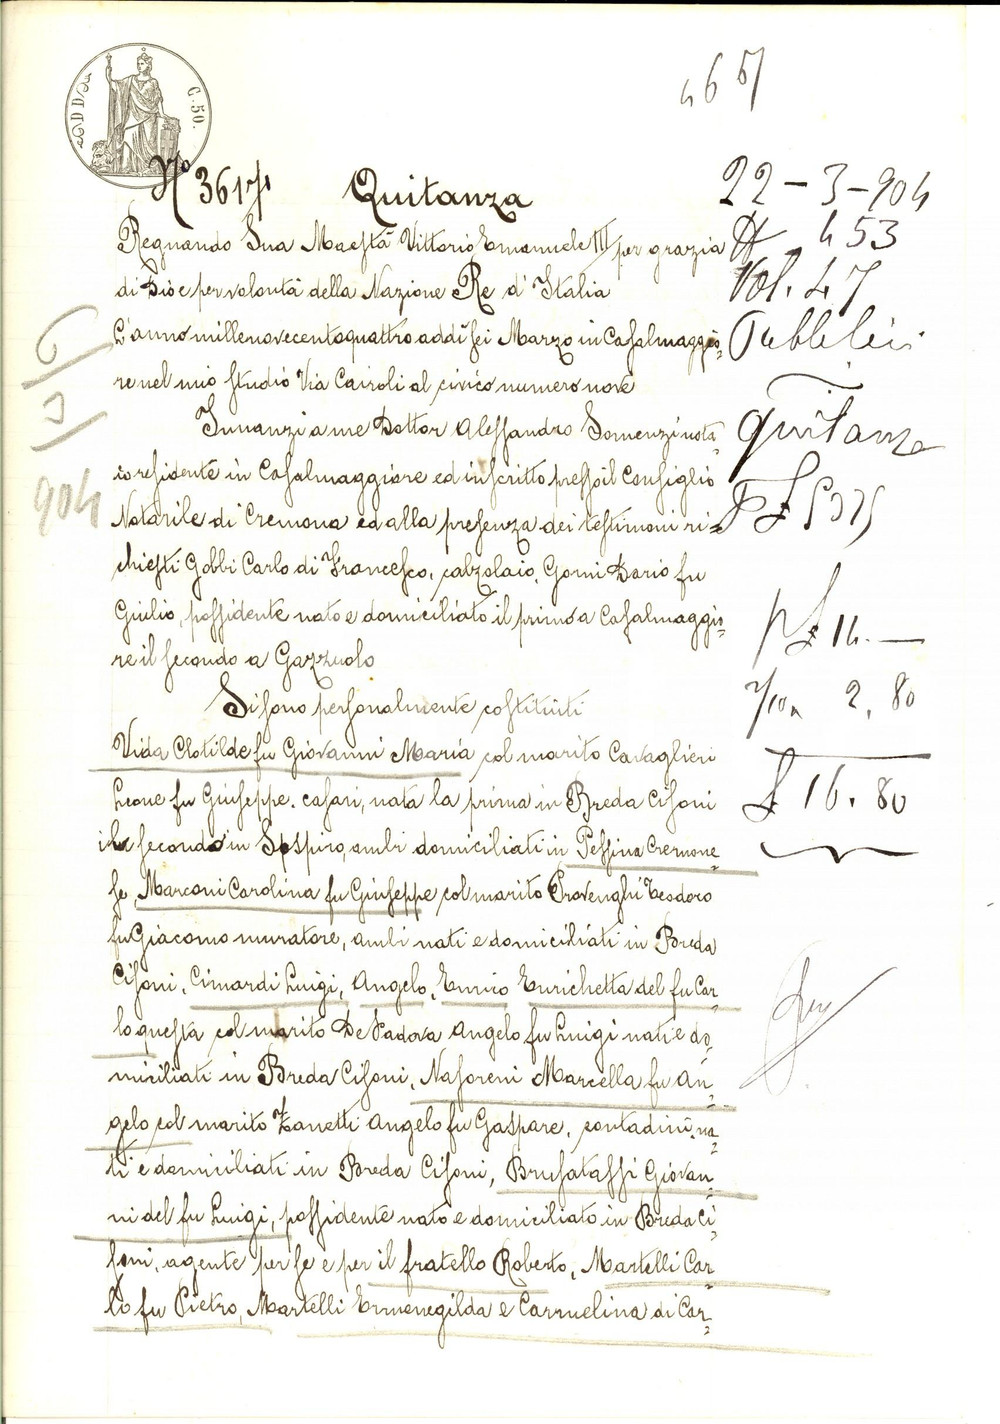 C. 50.
N.o 3617 Quitanza
Regnando Sua Maestà Vittorio Emanuele III per grazia
di Dio e per volontà della Nazione Re d'Italia
L'anno millenovecentoquattro addì sei Marzo in Casalmaggio=
re nel mio studio Via Cairoli al civico numero nove
Innanzi a me Dottor Alessandro Somenzi nota=
io residente in Casalmaggiore ed inscritto presso il Consiglio
Notarile di Cremona ed alla presenza dei testimoni ri=
chiesti Gobbi Carlo di Francesco, calzolaio, Gorni Dario fu
Giulio, possidente nato e domiciliato il primo a Casalmaggio=
re il secondo a Gazzuolo
Si sono personalmente costituiti
Vida Clotilde fu Giovanni Maria col marito Cavaglieri
Leone fu Giuseppe. casari, nata la prima in Breda Cisoni
il secondo in Sospiro, ambi domiciliati in Pessina Cremone=
se, Marconi Carolina fu Giuseppe col marito Provenghi Teodoro
fu Giacomo muratore, ambi nati e domiciliati in Breda
Cisoni, Cimardi Luigi, Angelo, Ennio Enrichetta del fu Car=
lo questa col marito De Padova Angelo fu Luigi nati e do=
miciliati in Breda Cisoni, Nasoreni Marcella fu An=
gelo col marito Zanetti Angelo fu Gaspare, contadini na=
ti e domiciliati in Breda Cisoni, Brusatassi Giovan=
ni del fu Luigi, possidente nato e domiciliato in Breda Ci=
soni, agente per se e per il fratello Roberto, Martelli Car=
lo fu Pietro, Martelli Ermenegilda e Carmelina di Car=
22-3-904
453
Vol. 47
Pubblici
quitanza
£ 14.—
2/10 2.80
£ 16.80
6
3
904